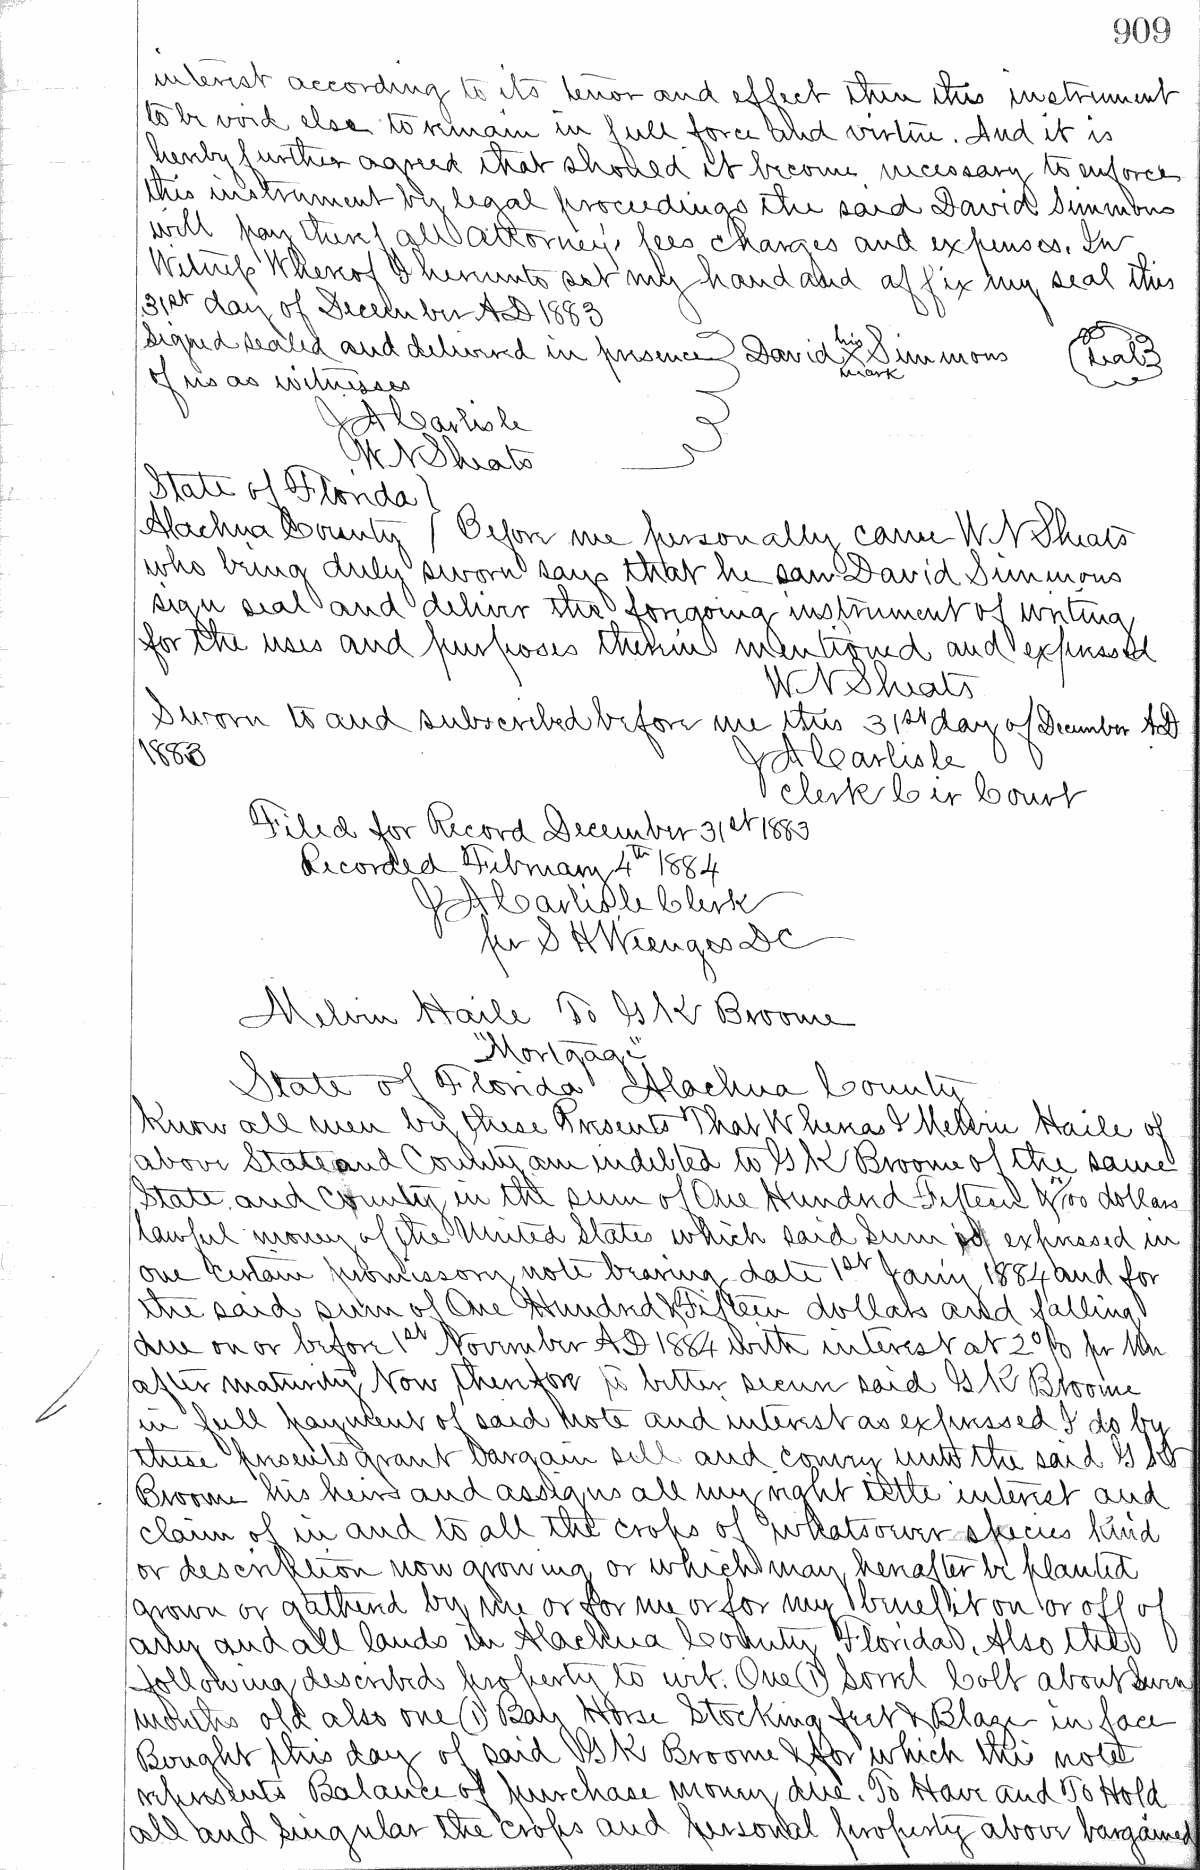 909
interest according to its tenor and effect then this instrument
to be void else to remain in full force and virtue. And it is
hereby further agreed that should it become necessary to enforce
this instrument by legal proceedings the said David Simmons
will pay therefor all attorney's fees charges and expenses. In
Witness Whereof I hereunto set my hand and affix my seal this
31st day of December AD 1883
Signed sealed and delivered in presence } David his X mark Simmons (Seal)
of us as witnesses
J A Carlisle
W N Sheats
State of Florida }
Alachua County } Before me personally came W N Sheats
who being duly sworn says that he saw David Simmons
sign seal and deliver the foregoing instrument of writing
for the uses and purposes therein mentioned and expressed
W N Sheats
Sworn to and subscribed before me this 31st day of December AD
1883
J A Carlisle
Clerk Cir Court
Filed for Record December 31st 1883
Recorded February 4th 1884
J A Carlisle Clerk
per S H Wienges DC
Melvin Haile To G K Broome
"Mortgage"
State of Florida Alachua County
Know all men by these Presents That Whereas I Melvin Haile of
above State and County am indebted to G K Broome of the same
State and County in the sum of One Hundred Fifteen & /00 dollars
lawful money of the United States which said Sum is expressed in
one certain promissory note bearing date 1st Jany 1884 and for
the said sum of One Hundred & Fifteen dollars and falling
due on or before 1st November AD 1884 with interest at 2% pr Mn
after maturity Now therefore to better secure said G K Broome
in full payment of said note and interest as expressed I do by
these presents grant bargain sell and convey unto the said G K
Broome his heirs and assigns all my right title interest and
claim of in and to all the crops of whatsoever species kind
or description now growing or which may hereafter be planted
grown or gathered by me or for me or for my benefit on or off of
any and all lands in Alachua County Florida. Also the
following described property to wit: One (1) Sorrel Colt about Seven
months old also one (1) Bay Horse Stocking feet & Blaze in face
Bought this day of said G K Broome & for which this note
represents Balance of purchase money due. To Have and To Hold
all and singular the crops and personal property above bargained